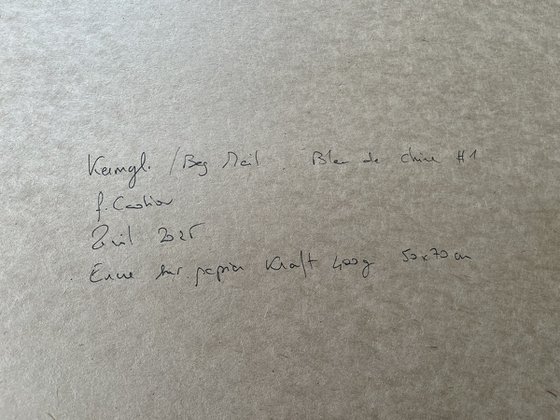 Kermyl. / Beg Meil. Bleu de chine #1
f. Castier
Avril 2025
Encre sur papier Kraft 400g 50x70 cm